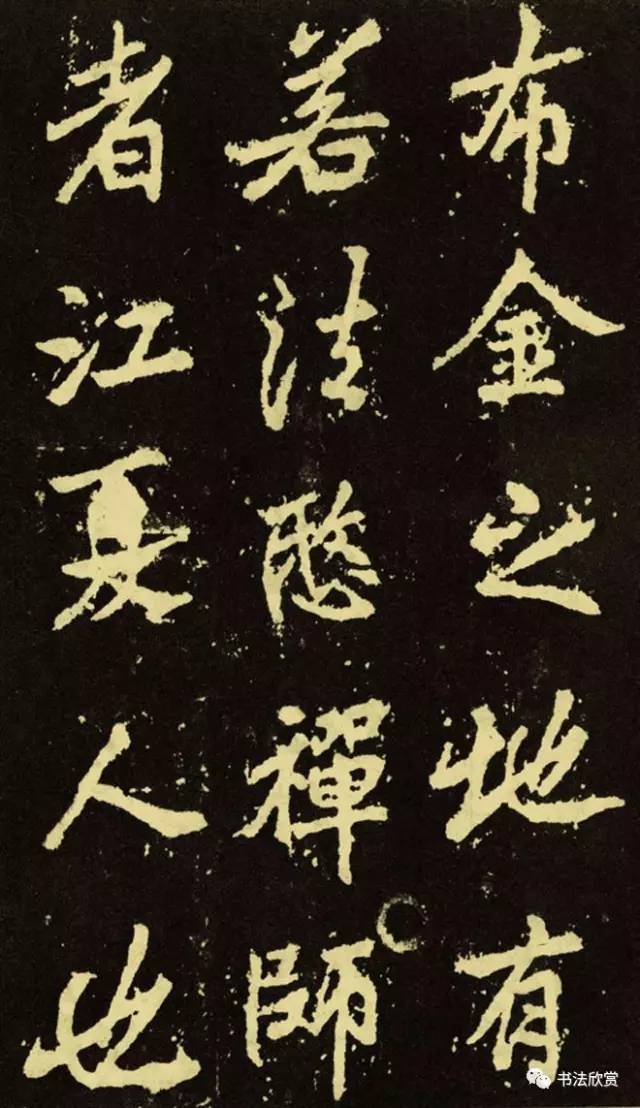 布金之地有
若法愍禪師
者江夏人也
书法欣赏